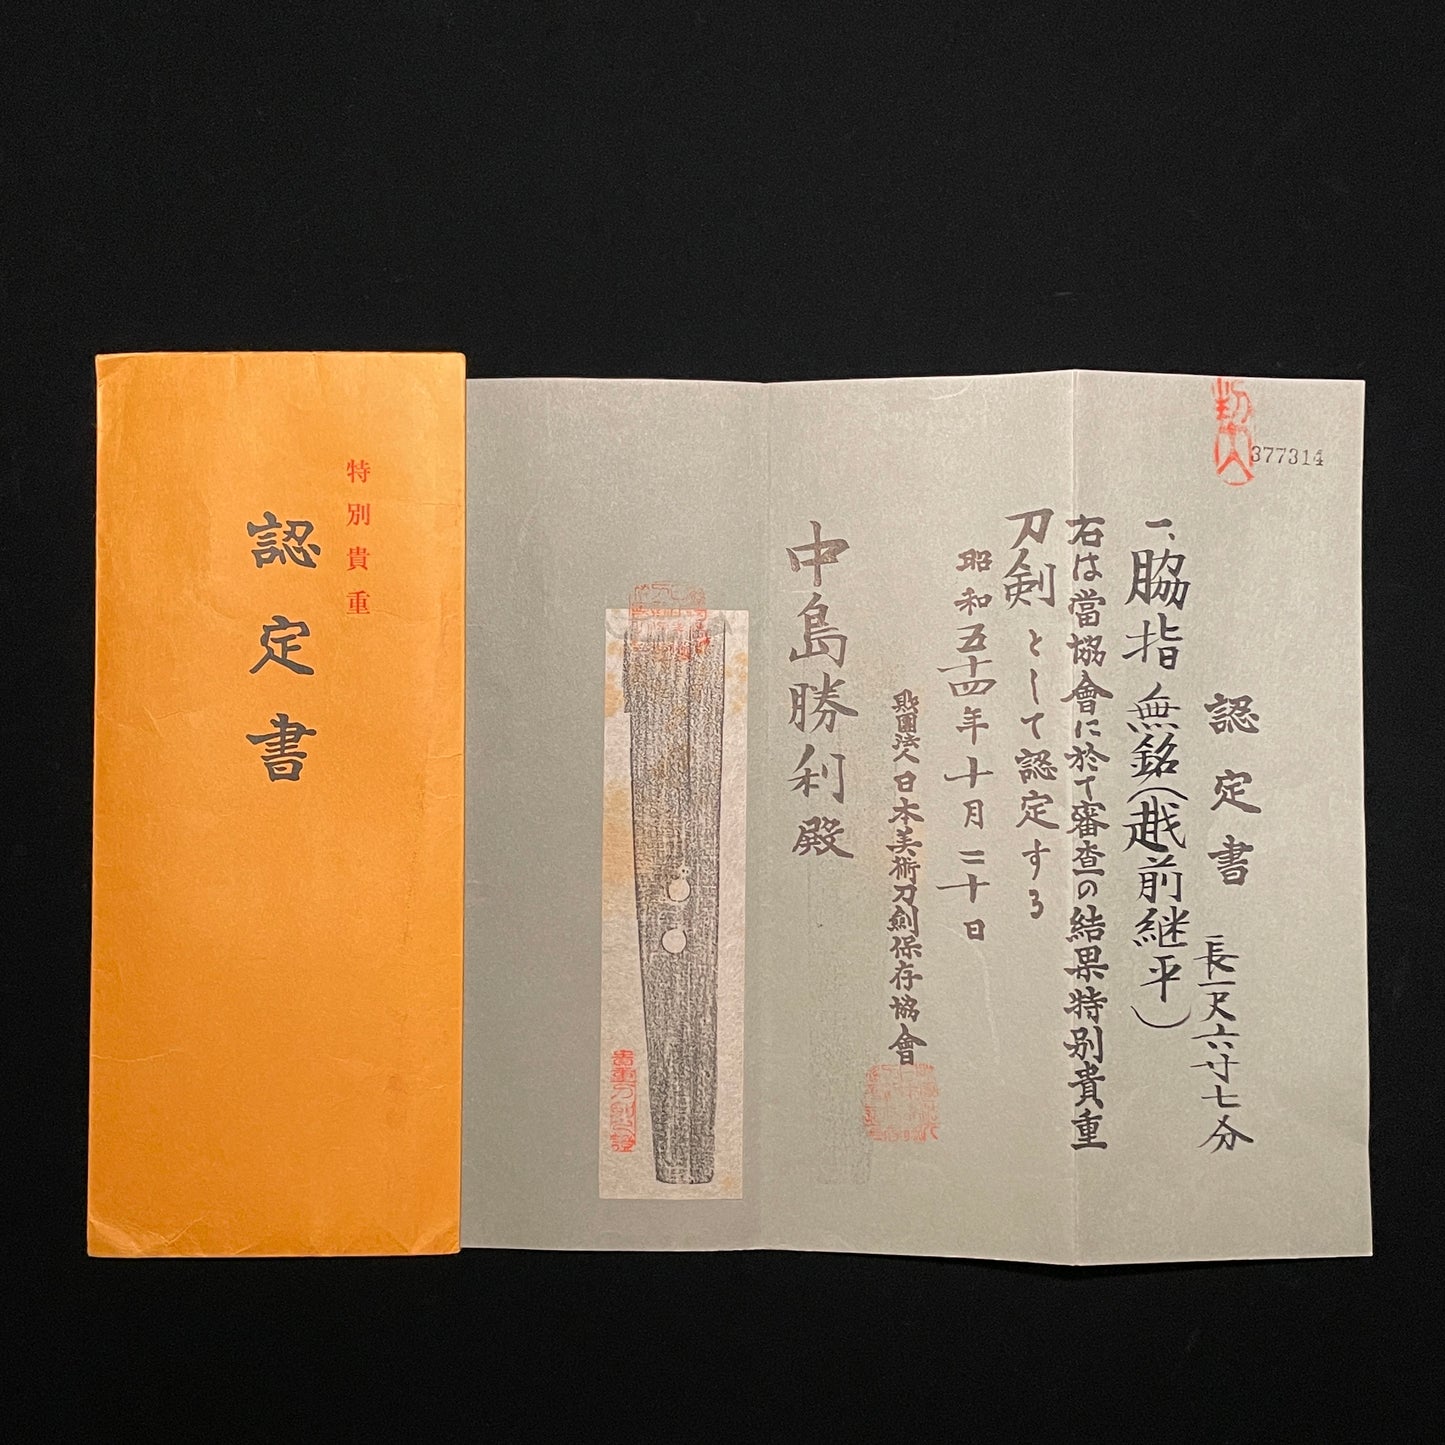 特別貴重
認定書
377314
認定書
長一尺六寸七分
一、脇指 無銘(越前継平)
右は當協會に於て審査の結果特別貴重
刀劍として認定する
昭和五十四年十月二十日
財團法人日本美術刀劍保存協會
中島勝利殿
貴重刀劍之證